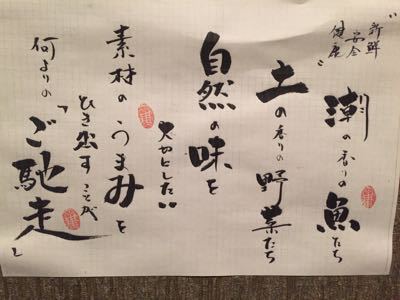 "新鮮
安全
健康"
潮の香りの魚たち
土の香りの野菜たち
自然の味を
大切にしたい
素材のうまみを
ひき出すことが
何よりの「ご馳走」